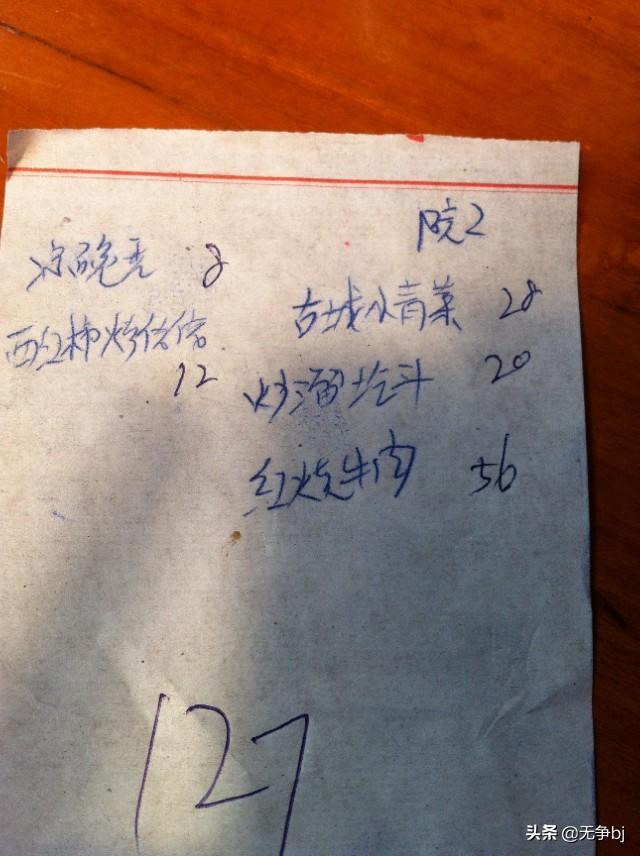 院2
凉碗豆 8
西红柿烤佬佬
12
古城水青菜 28
炒溜圪斗 20
红烧牛肉 56
127
头条 @无争bj